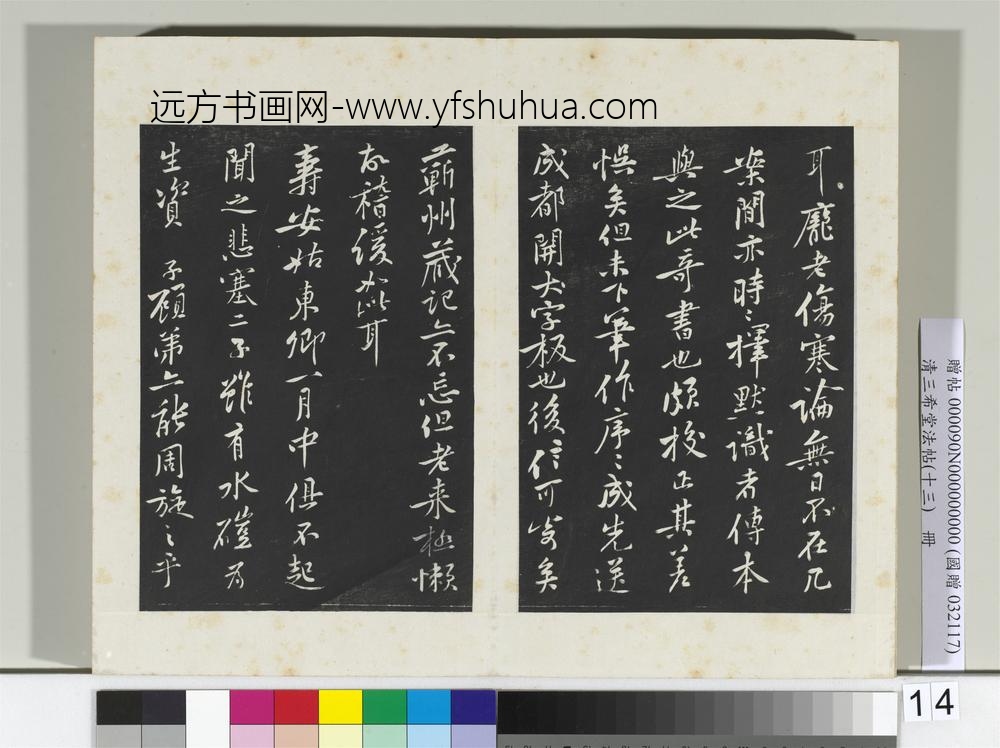 远方书画网-www.yfshuhua.com
耳龐老傷寒論無日不在几
案間亦時〻擇默識者傳本
與之此奇書也頗校正其差
悞矣但未下筆作序〻成先送
成都開大字板也後信可寄矣
蘄州藏記亦不忘但老來極懶
故稽緩如此耳
壽安姑東卿一月中俱不起
聞之悲塞二子雖有水磑為
生資 子顧弟亦能周旋之乎
贈帖 000090N000000000 (國贈 032117)
清三希堂法帖(十三) 冊
14